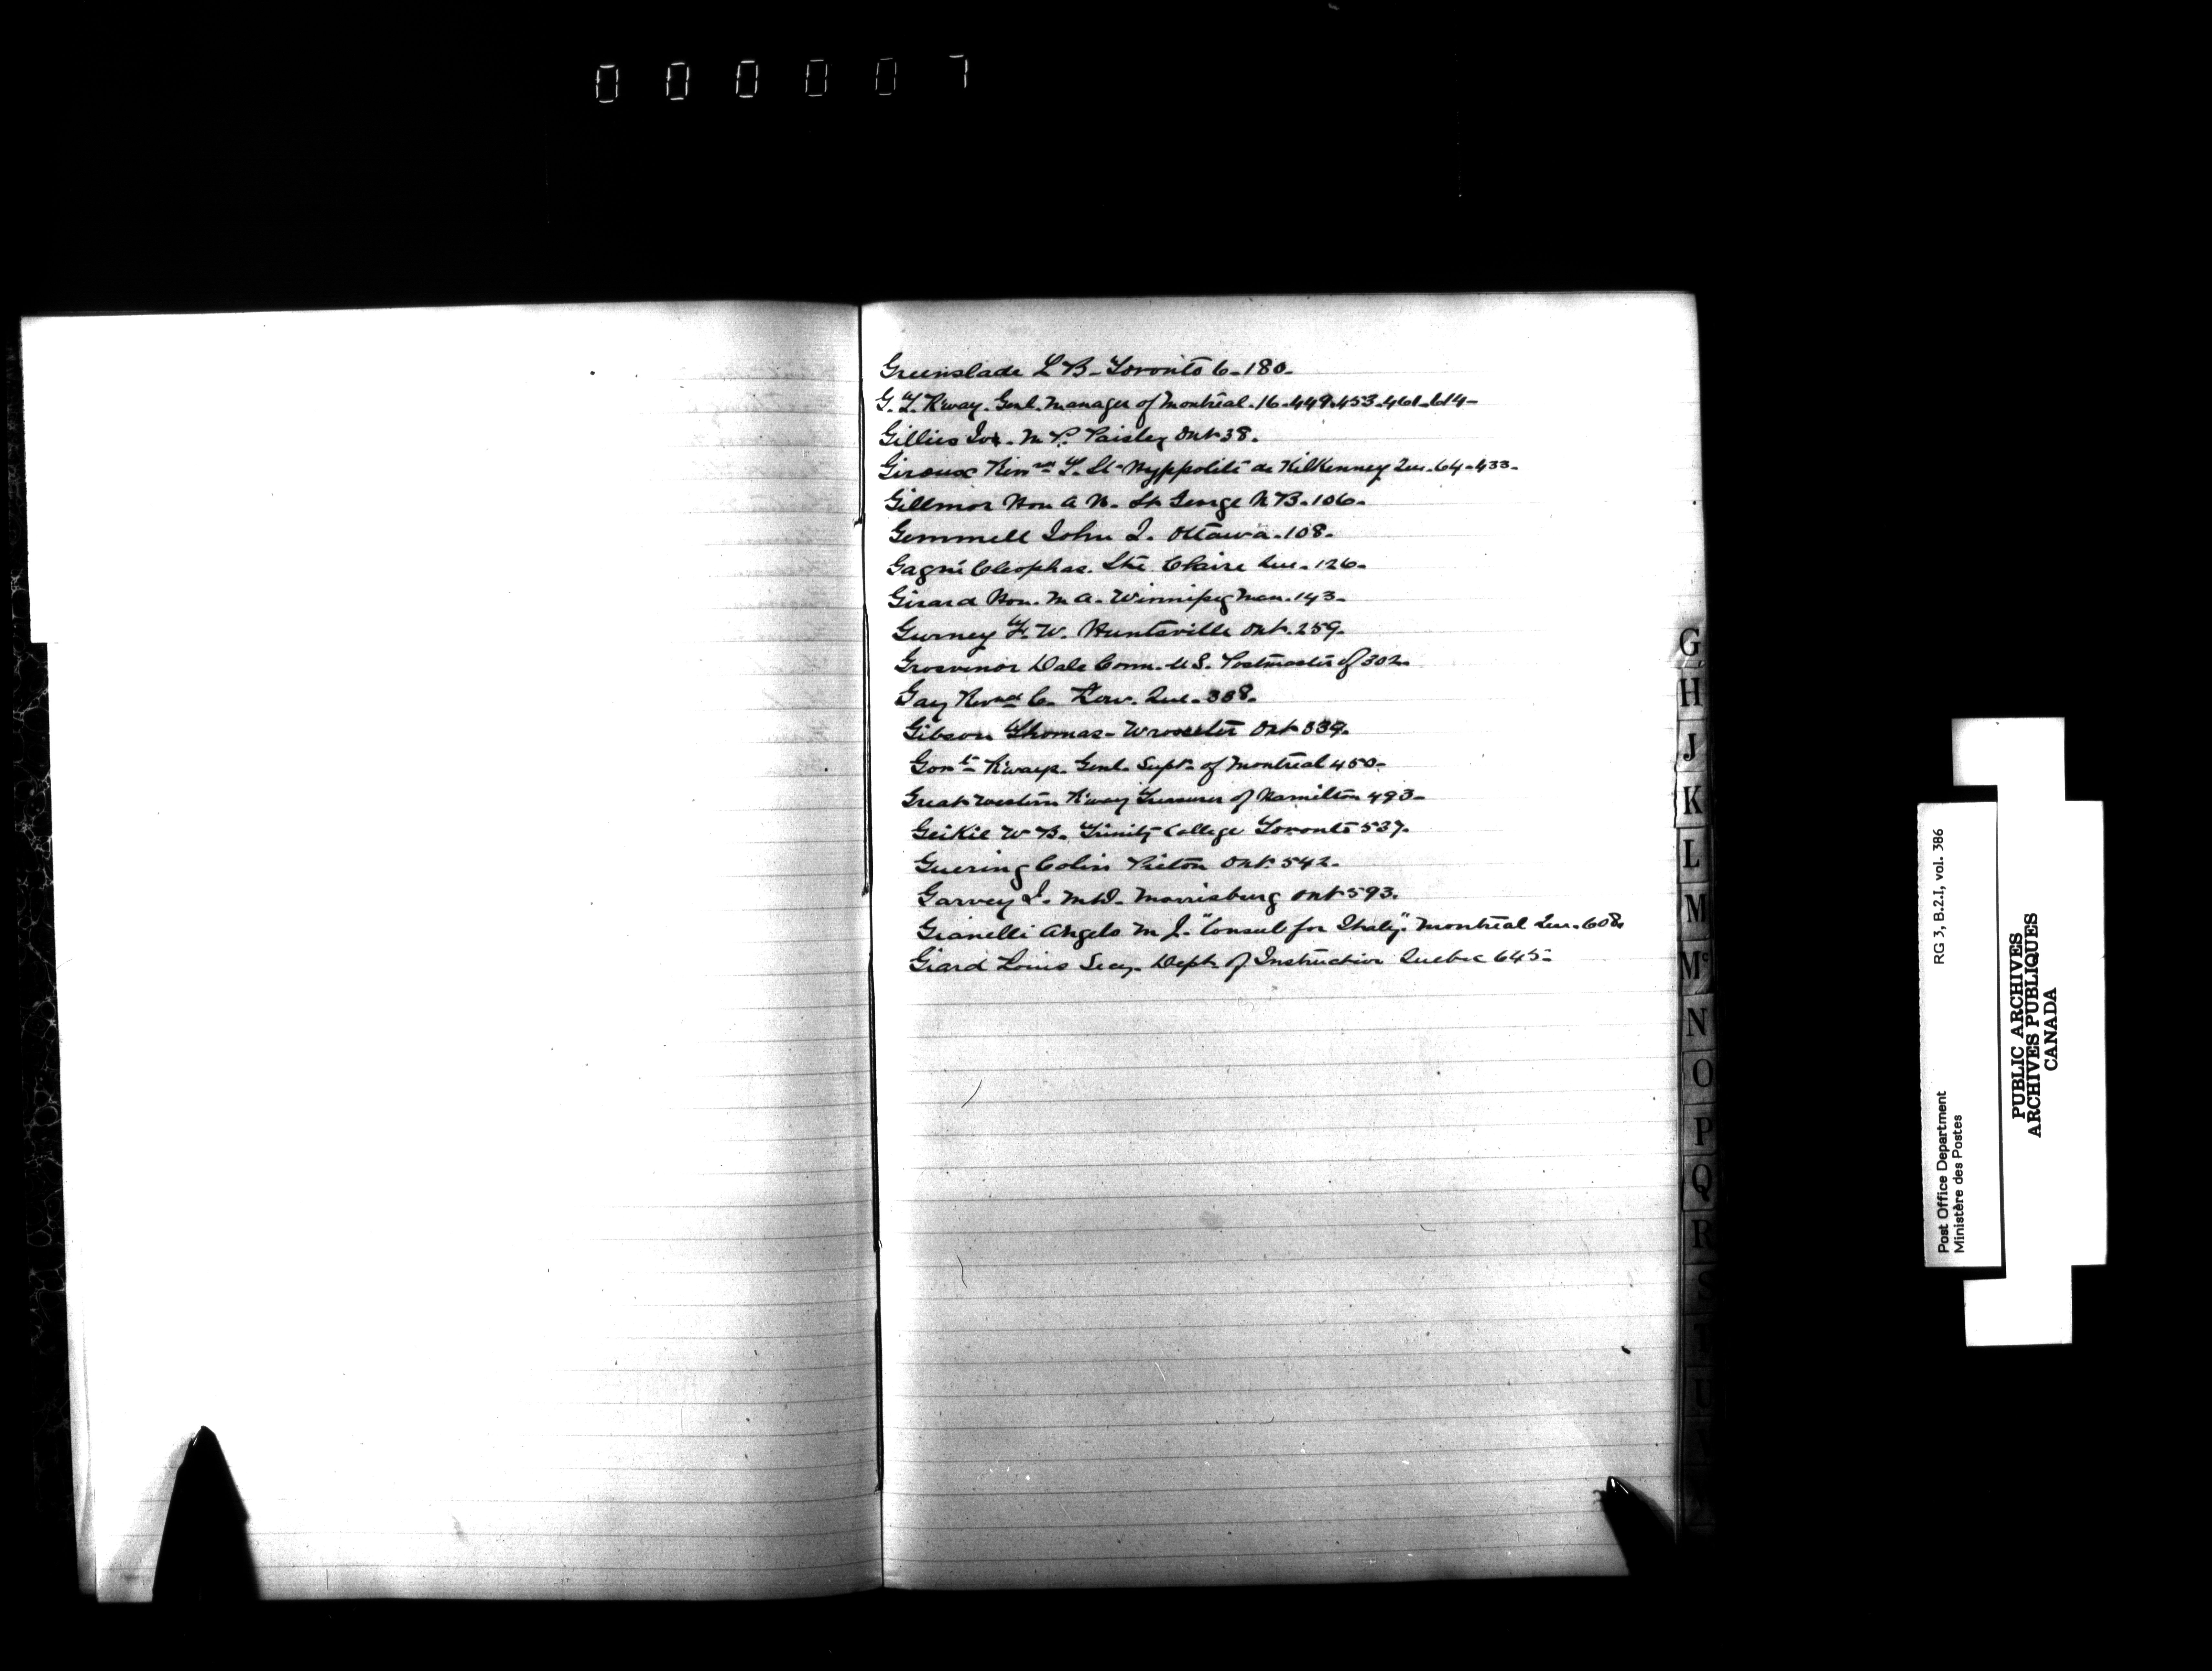 000007
Greenslade L B - Toronto 6 - 180 -
G. T. R'way. Genl. Manager of Montreal - 16 - 449 - 453 - 461 - 614 -
Gillies Jno. M. P. Paisley Ont 38.
Giroux T. St Hyppolite de Kilkenney Que - 64 - 433 -
Gillmor Hon A H. St George N B. 106 -
Gemmell John J. Ottawa. 108 -
Gagné Cleophas. Ste Claire Que - 126 -
Girard Hon. M A. Winnipeg Man. 143 -
Gurney F. W. Huntsville Ont. 259.
Grosvenor Dale Conn. U S. Postmaster of 302 -
Gay Revd C. Low. Que - 338.
Gibson Thomas - Wroxeter Ont 339.
Govt R'ways. Genl. Supt. of Montreal 450 -
Great Western R'way Treasurer of Hamilton 493 -
Geikie W B. Trinity College Toronto 537.
Guering Colin Picton Ont. 542.
Garvey J. M D. Morrisburg Ont 593.
Gianelli Angelo M J. "Consul for Italy". Montreal Que - 608.
Giard Louis Secy. Dept of Instruction Quebec 645 -
G
H
J
K
L
M
Mc
N
O
P
Q
R
S
T
U
RG 3, B.2.I, vol. 386
Post Office Department
Ministère des Postes
PUBLIC ARCHIVES
ARCHIVES PUBLIQUES
CANADA